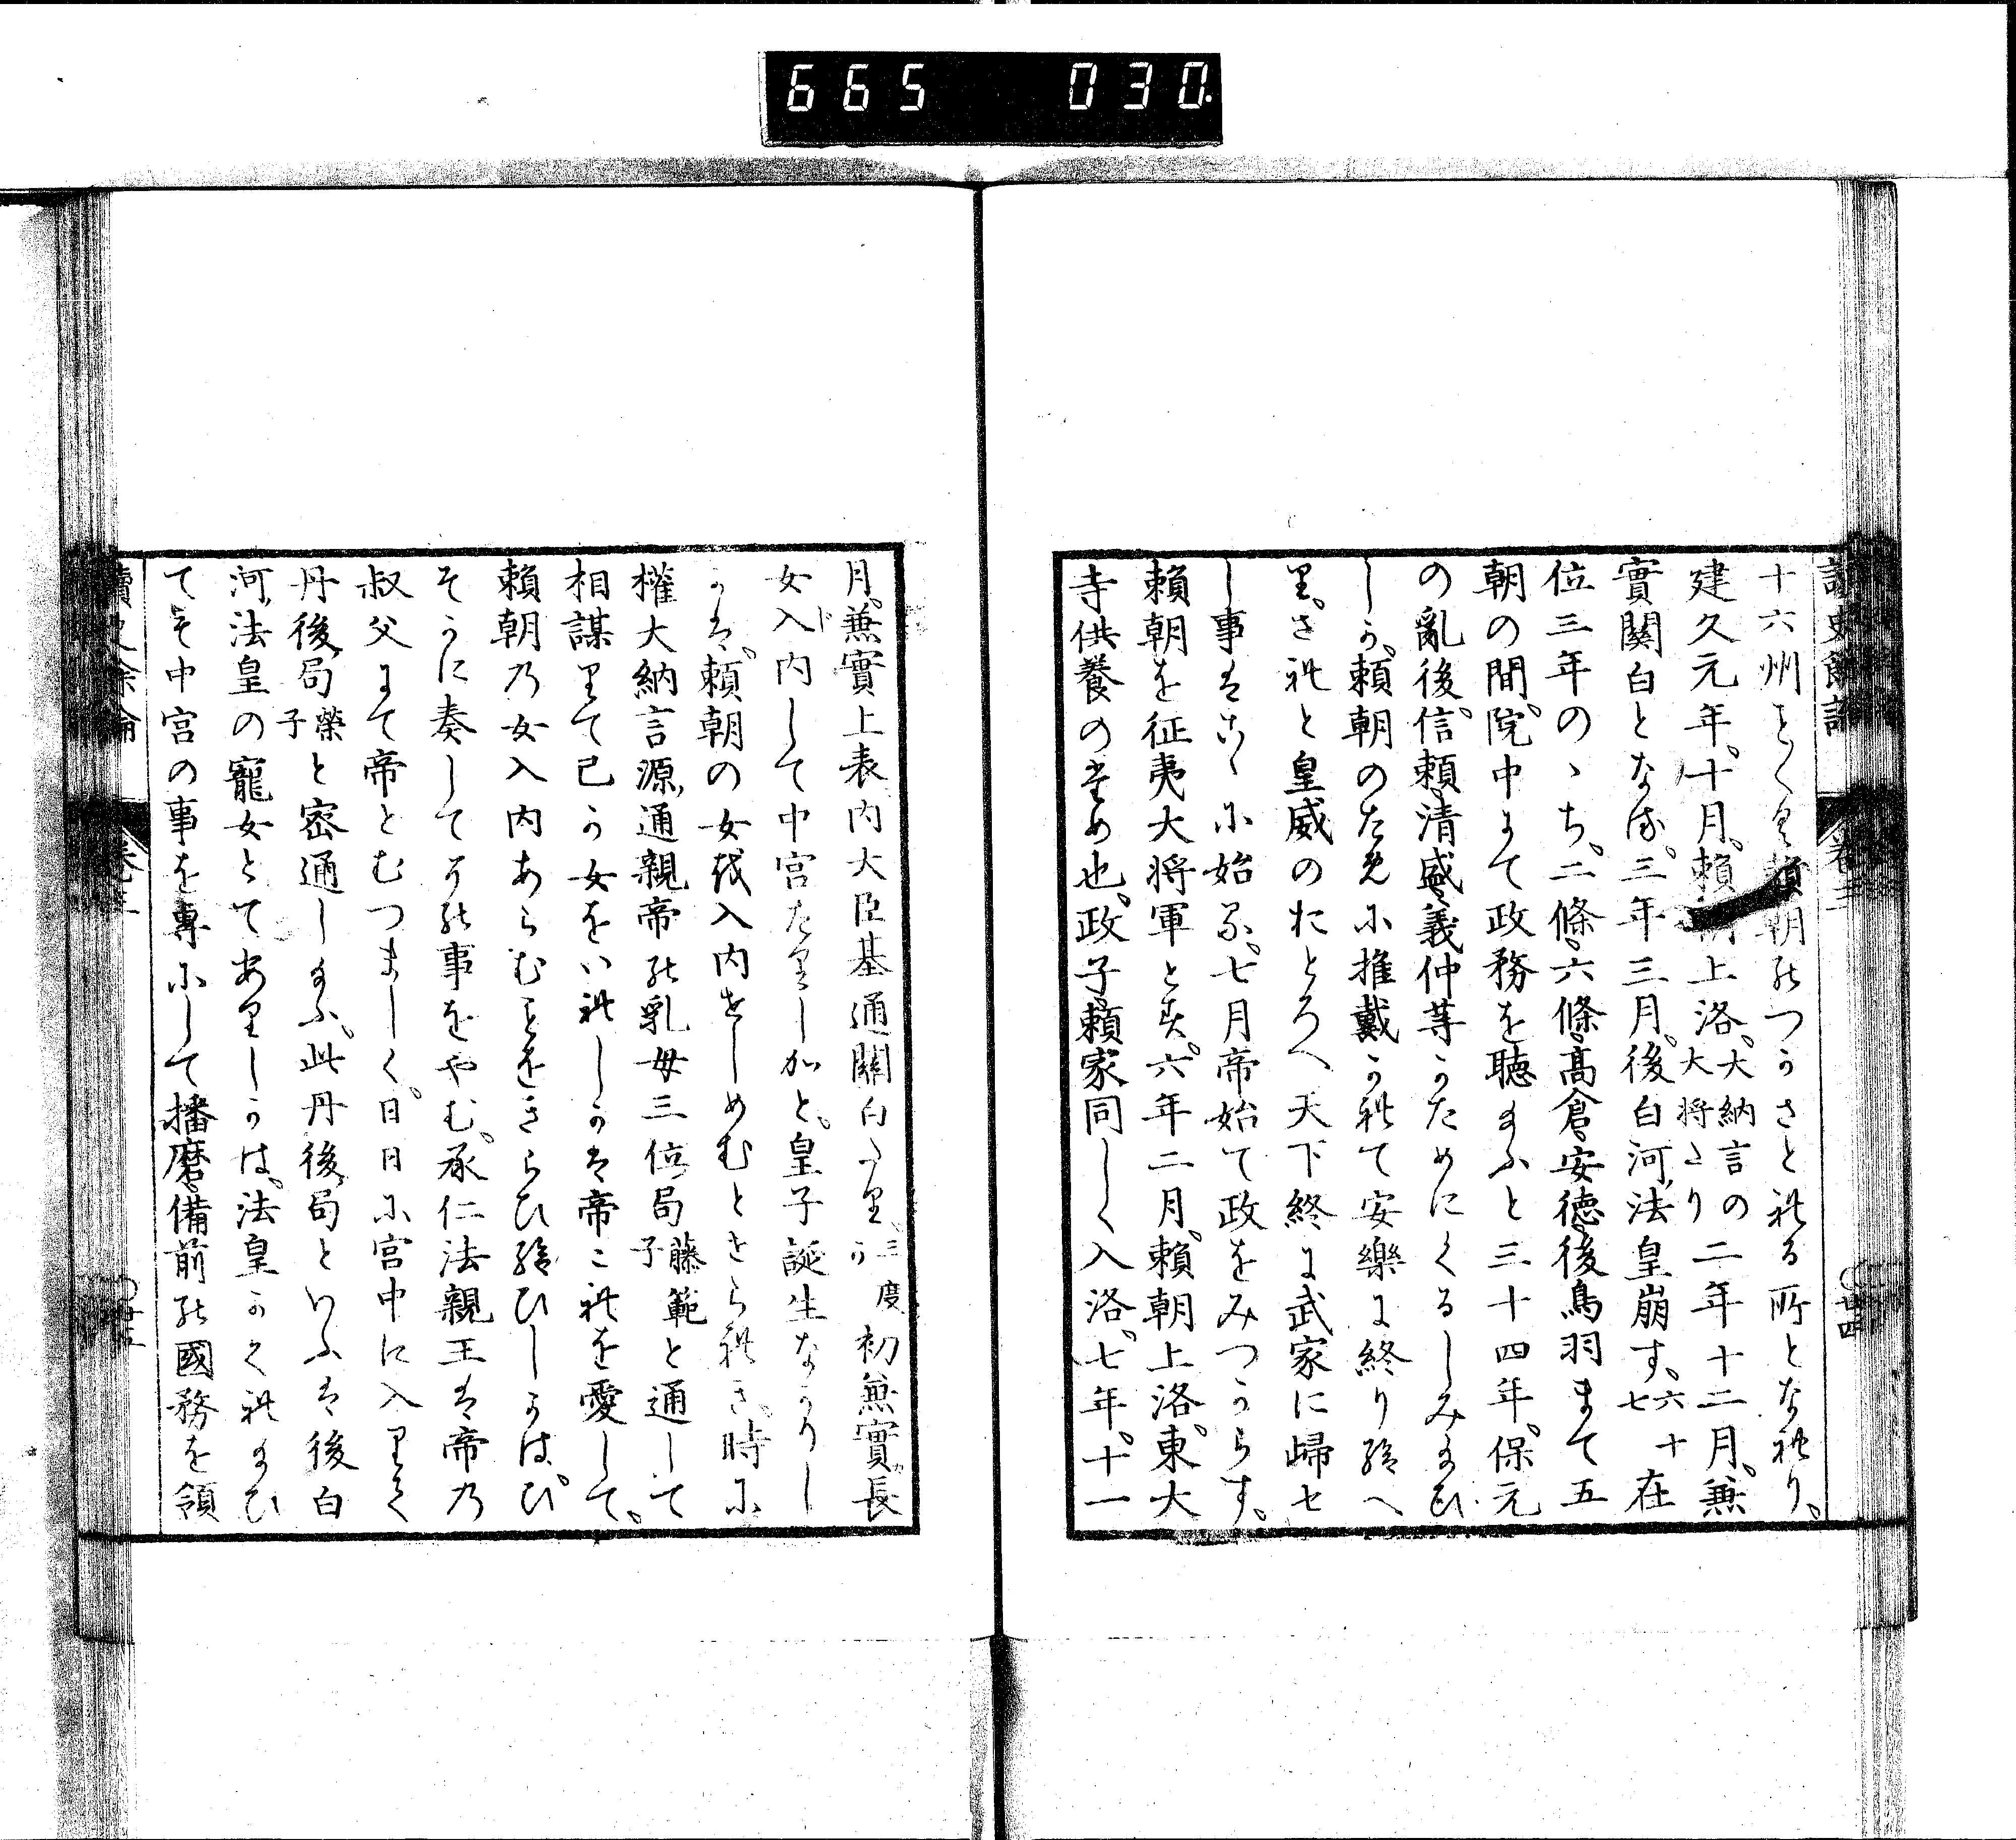 665 030.
讀史餘論 卷三 〇廿四
十六州ことく頼朝のつかさとれる所となれり。
建久元年。十月。頼朝上洛。大納言の大将たり二年十二月。兼
實關白となる。三年三月。後白河法皇崩す。六十七在
位三年のゝち。二條。六條。高倉。安徳。後鳥羽まて五
朝の間。院中にて政務を聴給ふと三十四年。保元
の亂後。信頼。清盛。義仲等かためにくるしみ給ひ
しか。頼朝のために推戴かれて安樂に終り給へ
り。されと皇威のおとろへ天下終に武家に歸せ
し事はこゝに始る。七月帝始て政をみつからす。
頼朝を征夷大将軍とす。六年二月。頼朝上洛。東大
寺供養のため也。政子。頼家同しく入洛。七年。十一
月。兼實上表内大臣基通關白たり。三度か初兼實長
女入内して中宮たりしかと。皇子誕生なかりし
かは。頼朝の女を入内せしめむとせられき。時に
權大納言源通親帝の乳母三位局藤範子と通して
相謀りて己か女をいれしかは帝これを愛して。
頼朝乃女入内あらむことをきらひ給ひしかは。ひ
そかに奏してその事をやむ。承仁法親王は帝乃
叔父にて帝とむつましく。日日に宮中に入りて
丹後局榮子と密通し給ふ。此丹後局といふは後白
河法皇の寵女とてありしかは。法皇かくれ給ひ
てそ中宮の事を專にして播磨備前の國務を領
讀史餘論 卷三